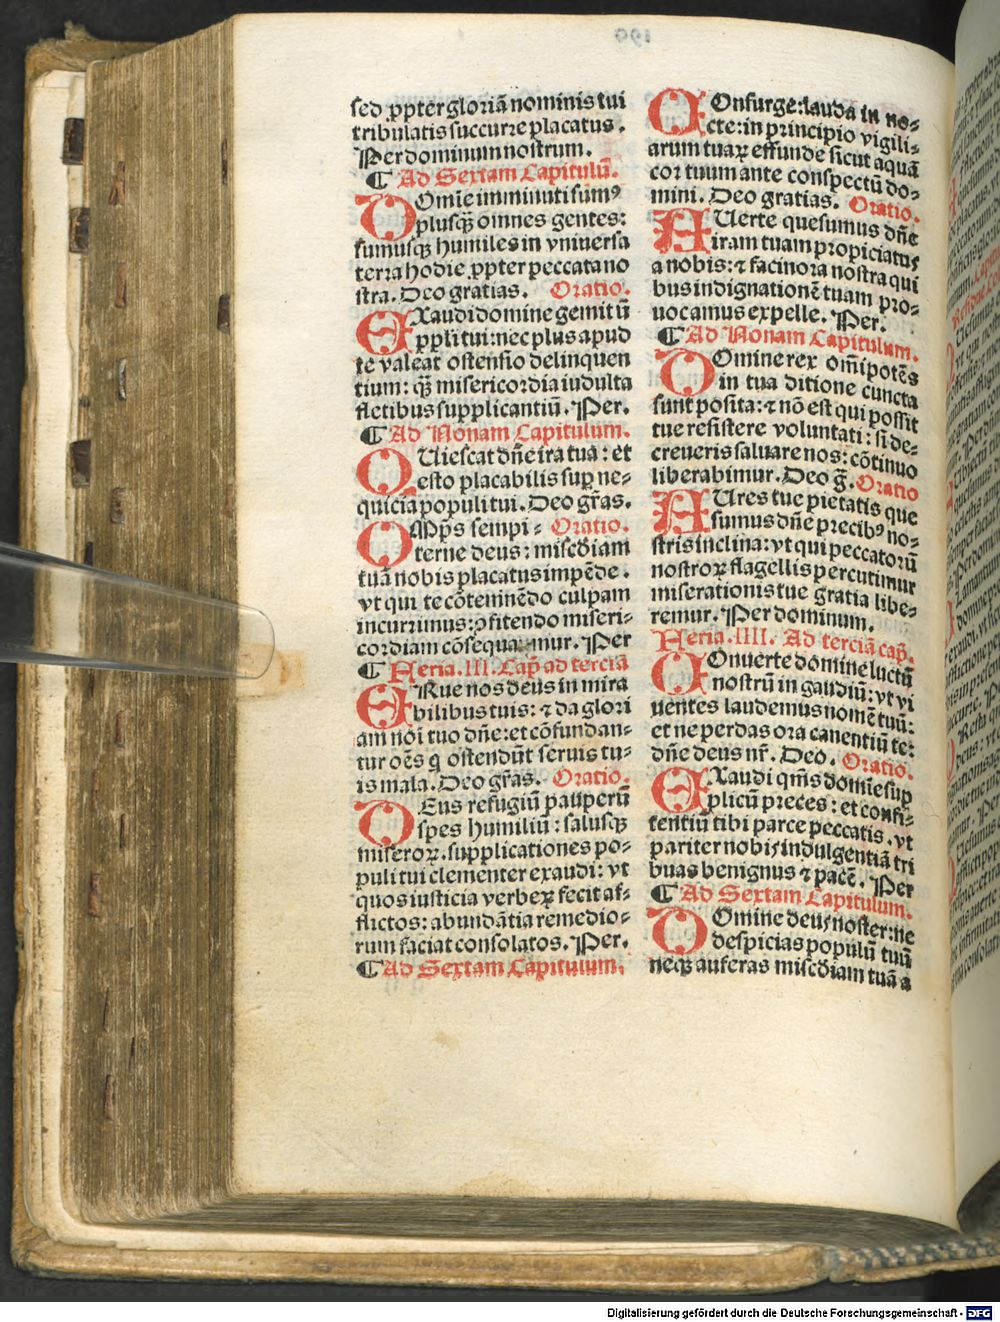 sed ꝓpter gloriā nominis tui
tribulatis succurre placatus.
Per dominum nostrum.
¶ Ad Sextam Capitulū.
DOmīe imminuti sumꝰ
plusqȝ omnes gentes:
sumusqȝ humiles in vniuersa
terra hodie ꝓpter peccata no
stra. Deo gratias. Oratio.
EXaudi domine gemitū
ppl̄i tui: nec plus apud
te valeat offensio delinquen
tium: qȝ misericordia indulta
fletibus supplicantiū. Per.
¶ Ad Nonam Capitulum.
QUiescat dn̄e ira tua: et
esto placabilis sup ne-
quicia populi tui. Deo gr̄as.
OMp̄s sempi- Oratio.
terne deus: misc̄diam
tuā nobis placatus impēde.
vt qui te cōtemnēdo culpam
incurrimus: ꝓfitendo miseri-
cordiam cōsequamur. Per
¶ Feria. III. Cap̄. ad tercia
ERue nos deus in mira
bilibus tuis: ⁊ da glori
am noī tuo dn̄e: et cōfundan-
tur oēs q̄ ostendūt seruis tu-
is mala. Deo gr̄as. Oratio.
DEus refugiū pauperū
spes humiliū: salusqȝ
miseroꝝ. supplicationes po-
puli tui clementer exaudi: vt
quos iusticia verbeꝝ fecit af-
flictos: abundātia remedio-
rum faciat consolatos. Per.
¶ Ad Sextam Capitulum.
COnsurge: lauda in no-
cte: in principio vigili-
arum tuaꝝ effunde sicut aquā
cor tuum ante conspectū do-
mini. Deo gratias. Oratio.
AUerte quesumus dn̄e
iram tuam propiciatus
a nobis: ⁊ facinora nostra qui
bus indignationē tuam pro-
uocamus expelle. Per.
¶ Ad Nonam Capitulum.
DOmine rex om̄ipotēs
in tua ditione cuncta
sunt posita: ⁊ nō est qui possit
tue resistere voluntati: si de-
creueris saluare nos: cōtinuo
liberabimur. Deo g̅. Oratio
AUres tue pietatis que
sumus dn̄e precibꝰ no-
stris inclina: vt qui peccatorū
nostroꝝ flagellis percutimur
miserationis tue gratia libe-
remur. Per dominum.
Feria. IIII. Ad terciā cap̄.
COnuerte domine luctū
nostrū in gaudiū: vt vi
uentes laudemus nomē tuū:
et ne perdas ora canentiū te:
dn̄e deus nr̄. Deo. Oratio.
EXaudi qm̄s domīe sup
plicū preces: et confi-
tentiū tibi parce peccatis. vt
pariter nobis indulgentiā tri
buas benignus ⁊ pacē. Per
¶ Ad Sextam Capitulum.
DOmine deus noster: ne
despicias populū tuū
neqȝ auferas misc̄diam tuā a
Digitalisierung gefördert durch die Deutsche Forschungsgemeinschaft - DFG